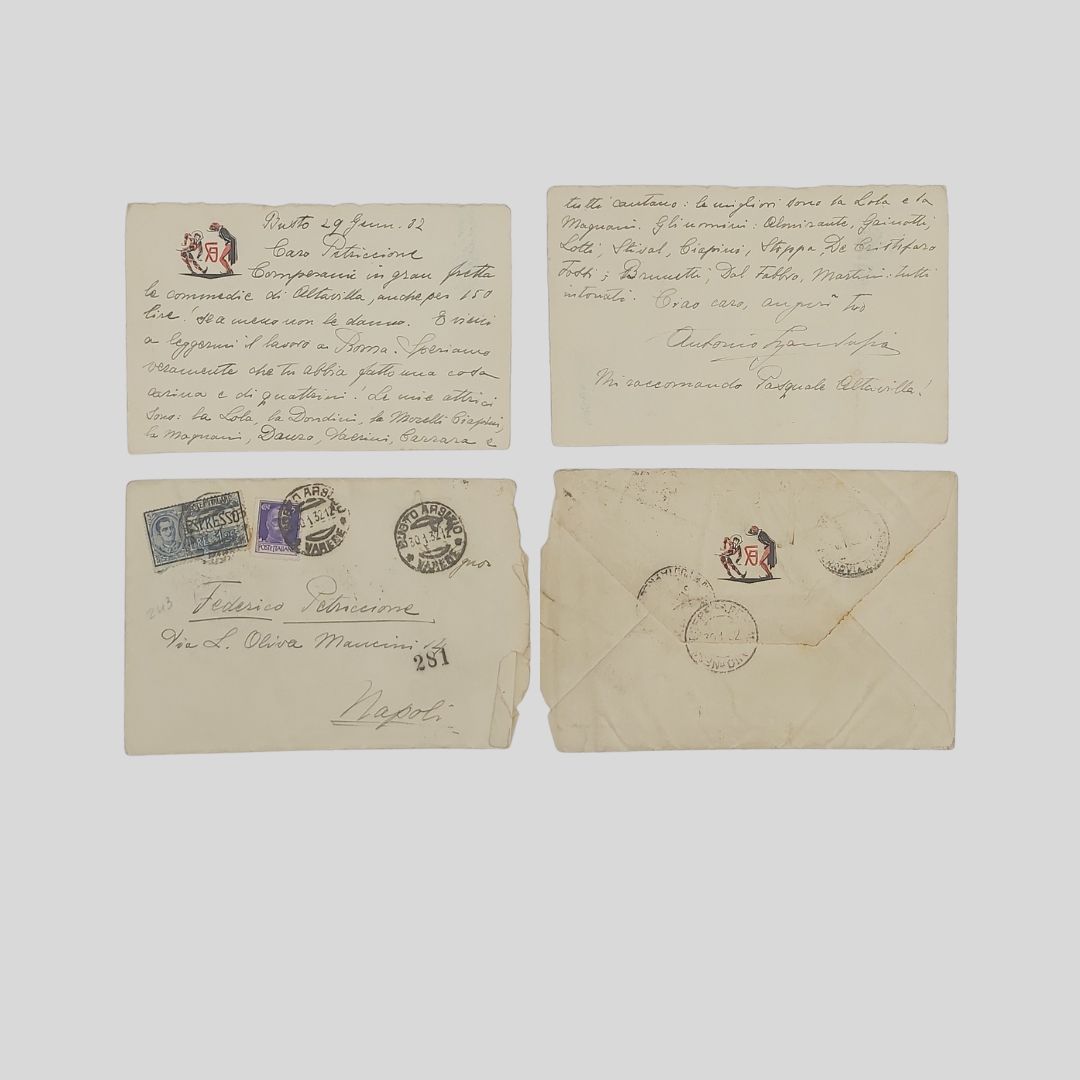 Busto 29 Genn. 32
Caro Petriccione
Comperami in gran fretta
le commedie di Altavilla, anche per 150
lire! se a meno non le danno. E vieni
a leggermi il lavoro a Roma. Speriamo
veramente che tu abbia fatto una cosa
carina e di quattrini! Le mie attrici
sono: la Lola, la Dondini, la Moretti Ciapini,
la Magnani, Dauro, Carrara e
tutti cantano: le migliori sono la Lola e la
Magnani. Gli uomini: Almirante, Gainotti,
Lotti, Stival, Ciapini, Stoppa, De Cristofaro
Tossi; Brunetti; Dal Fabbro, Martini: tutti
intonati. Ciao caro, auguri tuo
Antonio Gandusio
Mi raccomando Pasquale Altavilla!
ESPRESSO
LIRE 1,25
POSTE ITALIANE
BUSTO ARSIZIO
30.1.32.12
* VARESE *
BUSTO ARSIZIO
30.1.32.12
* VARESE *
243
Federico Petriccione
Via L. Oliva Mancini
281
Napoli